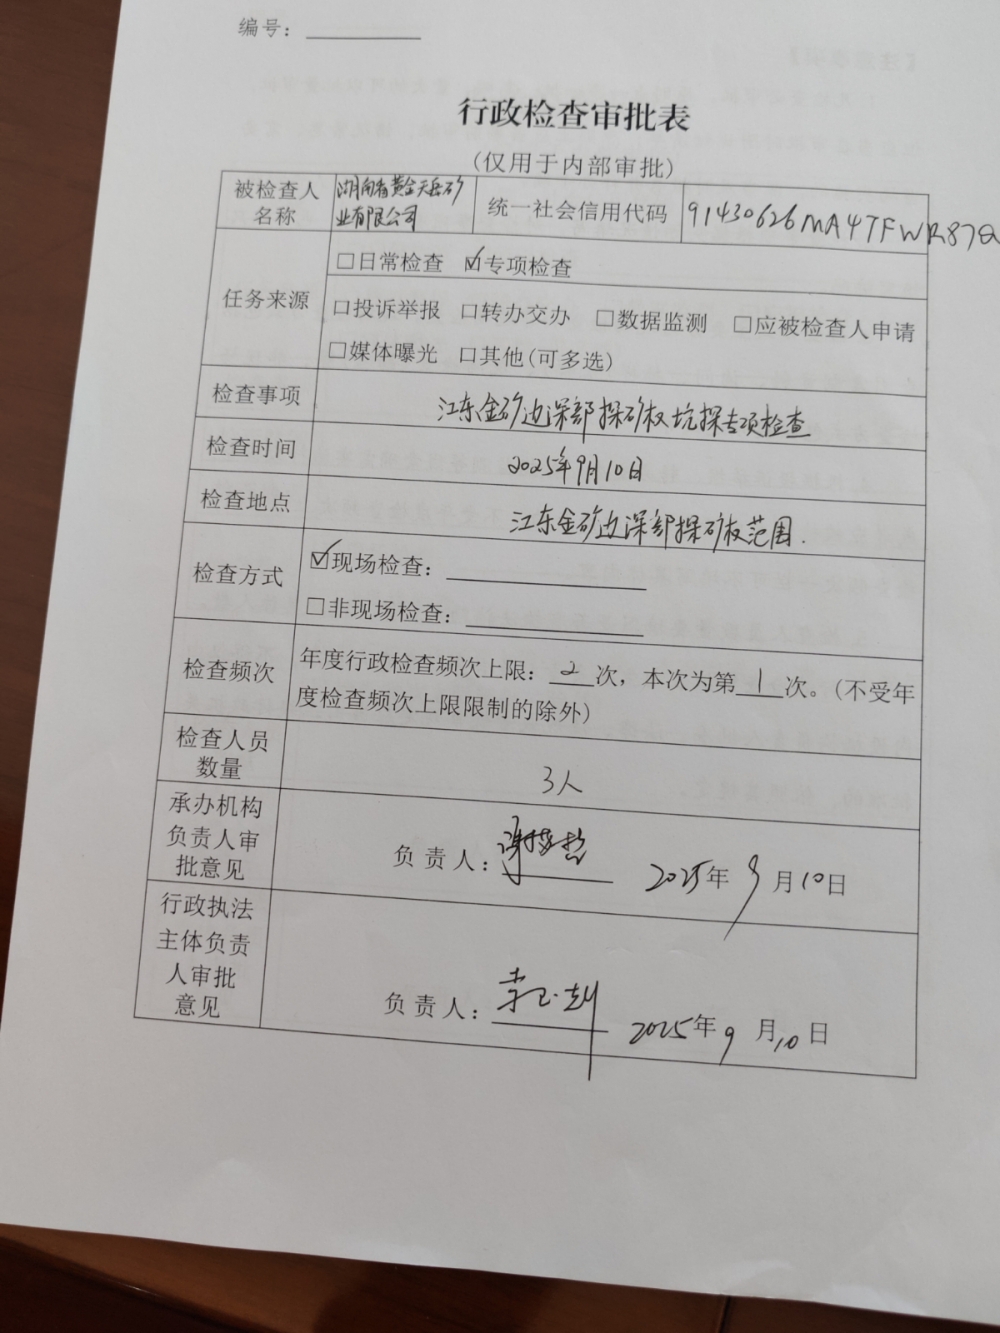 编号：
行政检查审批表
(仅用于内部审批)
被检查人名称 湖南省黄金天岳矿业有限公司 统一社会信用代码 91430626MA4TFWR87Q
任务来源
□日常检查 ☑专项检查
□投诉举报 □转办交办 □数据监测 □应被检查人申请
□媒体曝光 □其他(可多选)
检查事项 江东金矿边深部探矿权坑探专项检查
检查时间 2025年9月10日
检查地点 江东金矿边深部探矿权范围.
检查方式
☑现场检查：
□非现场检查：
检查频次
年度行政检查频次上限：2次，本次为第1次。(不受年
度检查频次上限限制的除外)
检查人员
数量
3人
承办机构
负责人审
批意见
负责人： 2025年9月10日
行政执法
主体负责
人审批
意见
负责人： 2025年9月10日